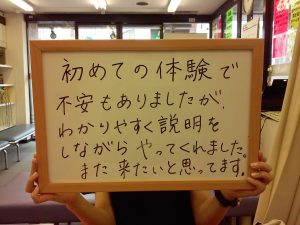 初めての体験で
不安もありましたが、
わかりやすく説明を
しながらやってくれました。
また来たいと思ってます。